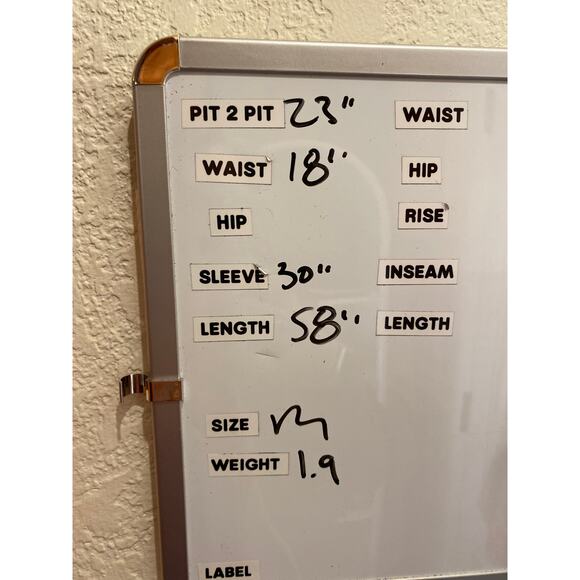 PIT 2 PIT 23" WAIST
WAIST 18" HIP
HIP RISE
SLEEVE 30" INSEAM
LENGTH 58" LENGTH
SIZE M
WEIGHT 1.9
LABEL